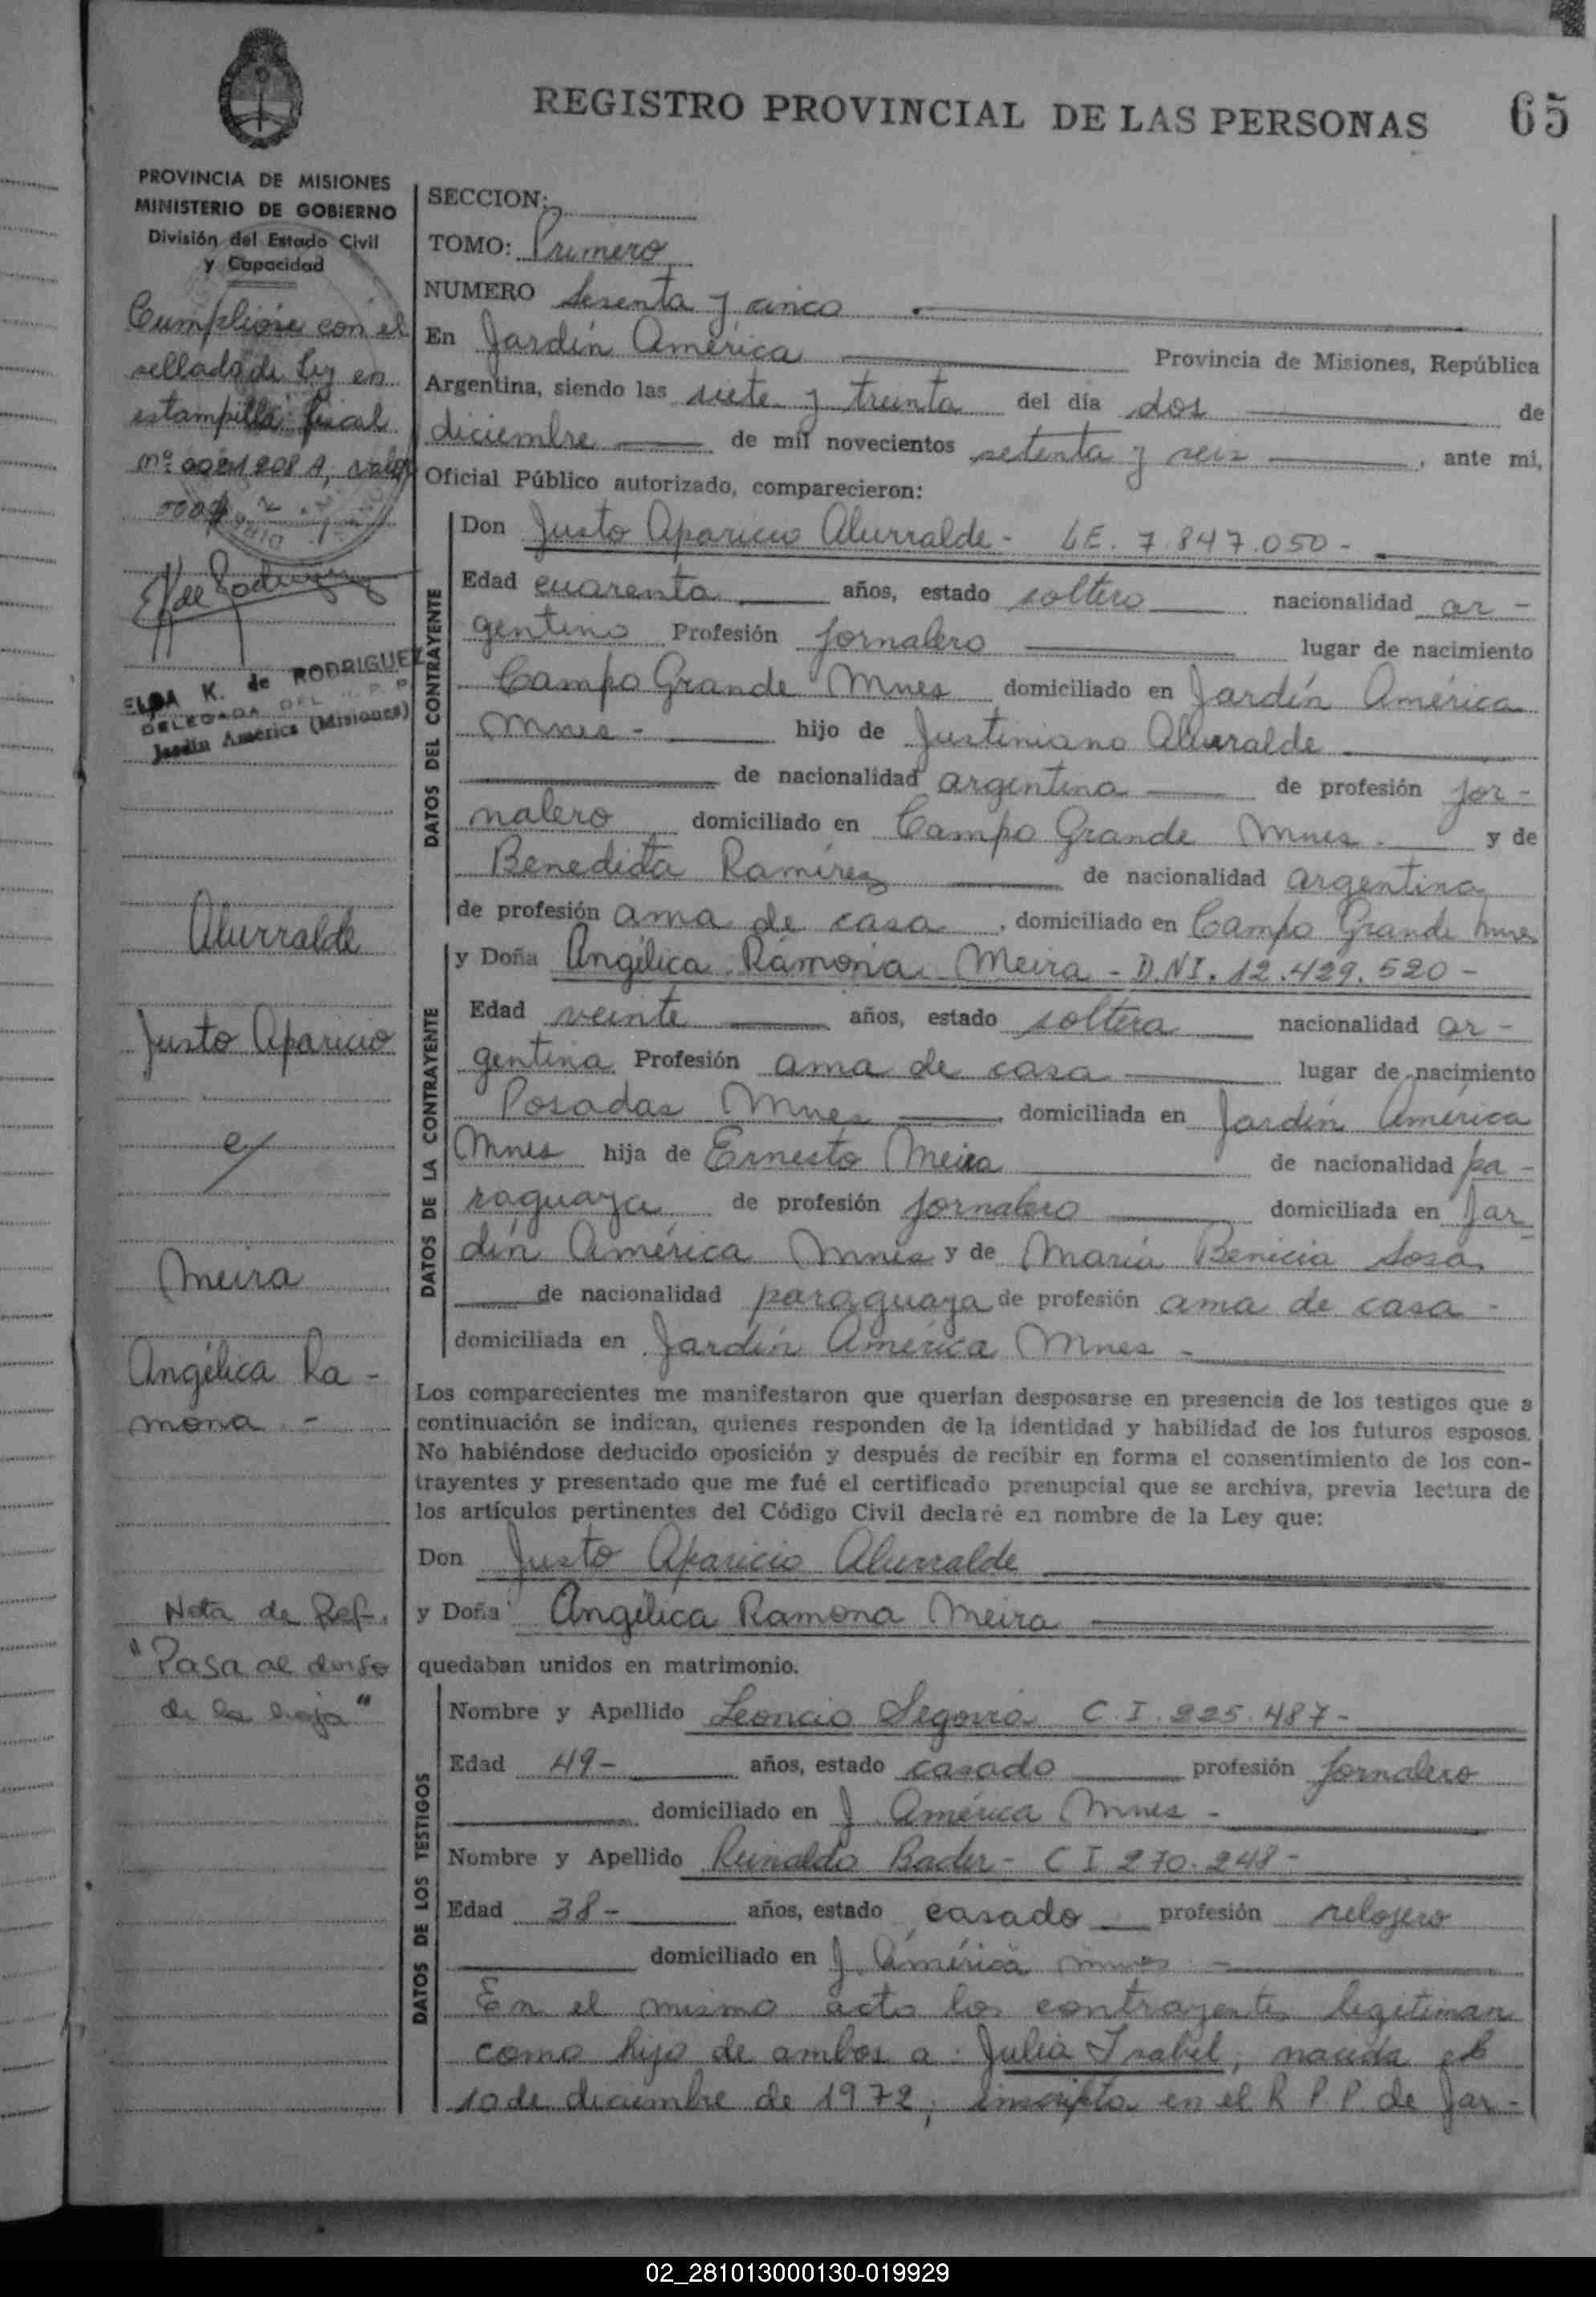 REGISTRO PROVINCIAL DE LAS PERSONAS
65
PROVINCIA DE MISIONES
MINISTERIO DE GOBIERNO
División del Estado Civil
y Capacidad
Cumplióse con el
sellado de Ley en
estampilla fiscal
ELSA K. de RODRIGUEZ
DELEGADA DEL R. P. P.
Jardín América (Misiones)
Alurralde
Justo Aparicio
y
Meira
Angélica Ra -
mona -
Nota de Ref.
"Pasa al dorso
de la hoja"
SECCION:
TOMO: Primero
NUMERO Sesenta y cinco
En Jardín América Provincia de Misiones, República
Argentina, siendo las siete y treinta del día dos de
diciembre de mil novecientos setenta y seis , ante mi,
Oficial Público autorizado, comparecieron:
DATOS DEL CONTRAYENTE
Don Justo Aparicio Alurralde - L.E. 7.847.050 -
Edad cuarenta años, estado soltero nacionalidad ar -
gentino Profesión jornalero lugar de nacimiento
Campo Grande Mnes domiciliado en Jardín América
Mnes - hijo de Justiniano Alurralde
de nacionalidad argentina de profesión jor -
nalero domiciliado en Campo Grande Mnes. y de
Benedicta Ramírez de nacionalidad argentina
de profesión ama de casa , domiciliado en Campo Grande Mnes
DATOS DE LA CONTRAYENTE
y Doña Angélica Ramona Meira - D.N.I. 12.429.520 -
Edad veinte años, estado soltera nacionalidad ar -
gentina Profesión ama de casa lugar de nacimiento
Posadas Mnes domiciliada en Jardín América
Mnes hija de Ernesto Meira de nacionalidad pa -
raguaya de profesión jornalero domiciliada en Jar
dín América Mnes y de María Benicia Sosa
de nacionalidad paraguaya de profesión ama de casa -
domiciliada en Jardín América Mnes -
Los comparecientes me manifestaron que querían desposarse en presencia de los testigos que a
continuación se indican, quienes responden de la identidad y habilidad de los futuros esposos.
No habiéndose deducido oposición y después de recibir en forma el consentimiento de los con-
trayentes y presentado que me fué el certificado prenupcial que se archiva, previa lectura de
los artículos pertinentes del Código Civil declaré en nombre de la Ley que:
Don Justo Aparicio Alurralde
y Doña Angélica Ramona Meira
quedaban unidos en matrimonio.
DATOS DE LOS TESTIGOS
Nombre y Apellido Leoncio Segovia C.I. 225.487 -
Edad 49 - años, estado casado profesión jornalero
domiciliado en J. América Mnes -
Nombre y Apellido Reinaldo Bader - C I 270.248 -
Edad 38 - años, estado casado profesión relojero
domiciliado en J. América mnes -
En el mismo acto los contrayentes legitiman
como hijo de ambos a: Julia Isabel, nacida el
10 de diciembre de 1972, inscripta en el R P P. de Jar -
02_281013000130-019929